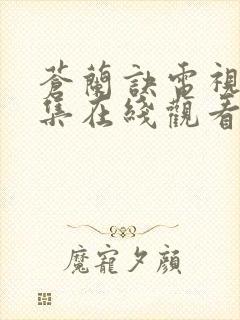 蒼蘭訣電視
集在綫觀看
魔寵夕顔